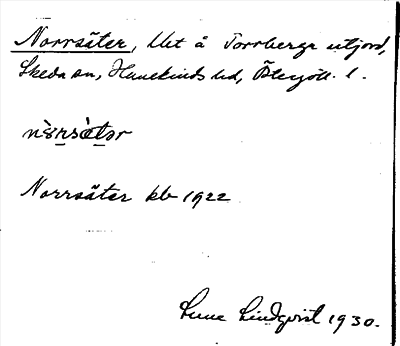 Norrsäter, lht å Torrberga utjord,
Skeda sn, Hanekinds hd, Östergötl. l.
Norrsäter kb 1922
Sune Lindqvist 1930.